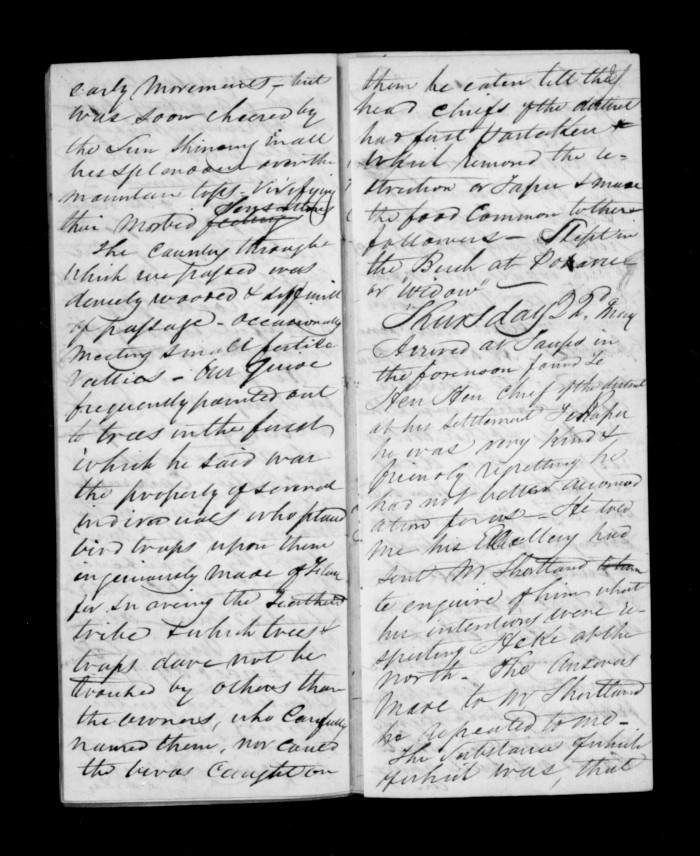 early movements - but
was soon cheered by
the Sun shining in all
his splendour over the
mountain tops - vivifying
their morbid feelings Sensations
The Country through
which we passed was
densely wooded & difficult
of passage - occasionally
meeting small fertile
Vallies - Our Guide
frequently pointed out
to trees in the forest
which he said was
the property of several
individuals who placed
bird traps upon them
ingeniously made of
for snaring the feathered
tribe & which trees &
traps dare not be
touched by others than
the owners, who Carefully
named them, nor could
the birds Caught on
them be eaten till the
head chiefs of the district
had first Partaken
which removed the re-
striction or Tapu & made
the food Common to there
followers - Slept in
the Bush at
or "Widow"
Thursday 22d. May
Arrived at Taupo in
the forenoon found Te
Heu Heu Chief of the district
at his Settlement Te Rapa
he was very kind &
friendly regretting he
had not better accomod
ation for us - He told
me his Excellency had
sent Mr Shortland to him
to enquire of him what
his intentions were re-
specting Heke at the
north - The Answers
made to Mr Shortland
he repeated to me -
The Substance of which
of which was, that